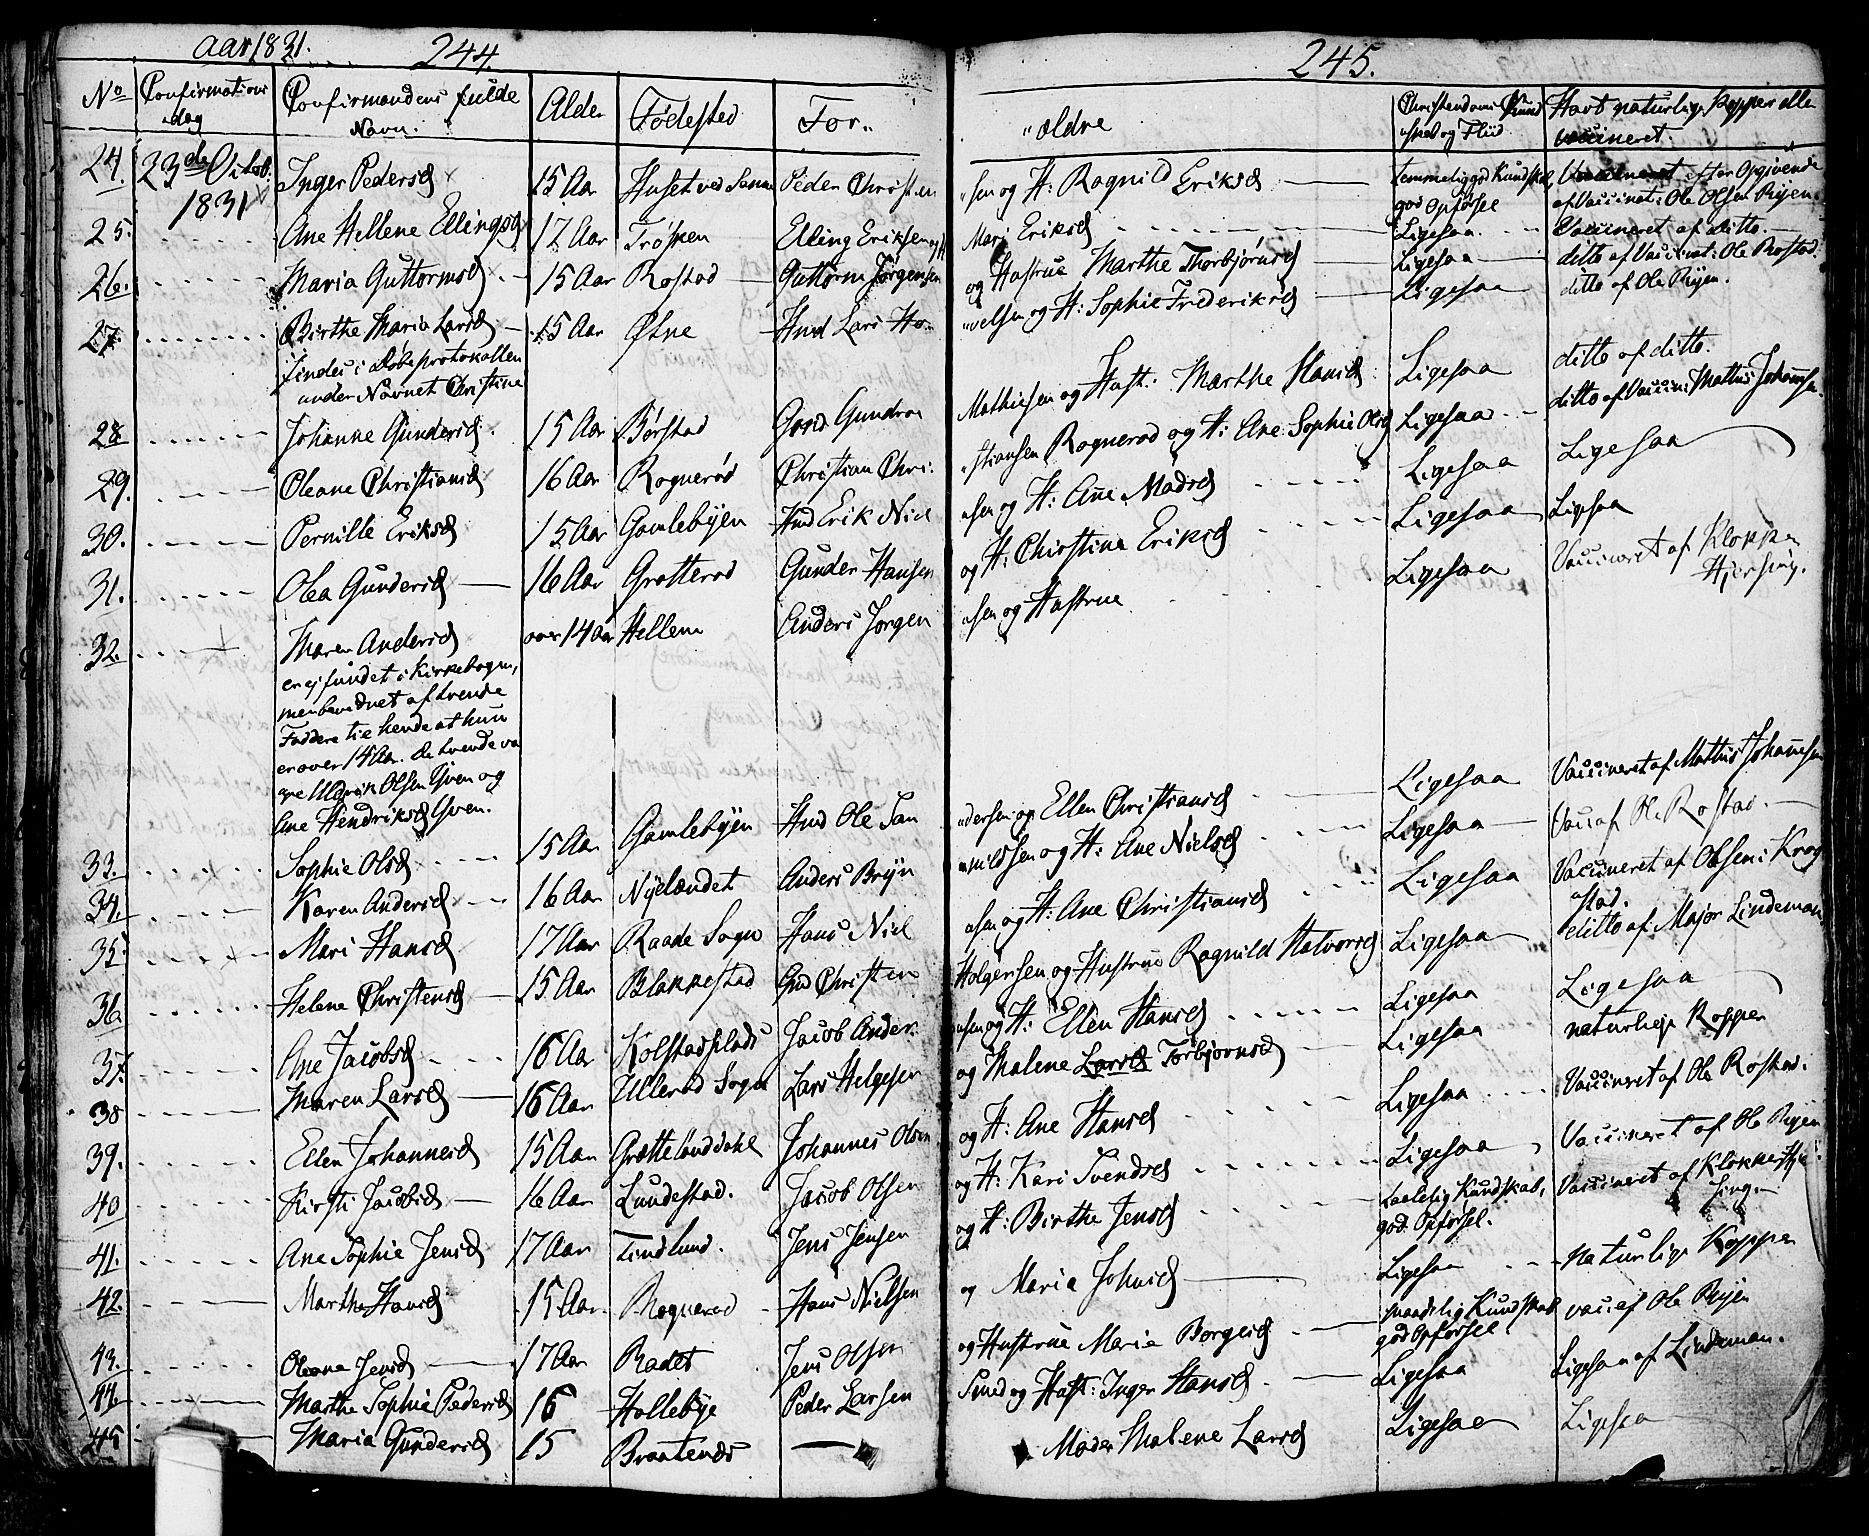 Aar 1831. 244.
245.
No Confirmations dag Confirmandens fulde Navn. Alder Fødested For„ „ældre Christendoms Kundskab og Fliid Havt naturlige Kopper eller vaccineret
24. 23de Octob: 1831 Inger Pedersd 15 Aar Huset ved Peder Christen „sen og H: Ragnild Eriksd temmelig god Kundskab, god Opførsel Vaccineret efter Opgivende af Vaccinat: Ole Olsen Ryen.
25. Ane Hellene Ellingsd 17 Aar Trøsken Elling Eriksen og H Mari Eriksd Ligesaa Vaccineret af ditto.
26. Maria Guttormsd 15 Aar Rostad Guttorm Jørgensen og Hustrue Marthe Thorbjørnsd Ligesaa ditto af Vaccinat: Ole Rostad.
27. Birthe Maria Larsd 15 Aar Østne Hmd Lars Ha„ „velsen og H: Sophie Frederiksd Ligesaa ditto af Ole Ryen.
findes i Døbeprotokollen
under Navnet Christine
28 Johanne Gundersd. 15 Aar Børstad Gmd Gunder Mathiesen og Hust: Marthe Hansd Ligesaa ditto af ditto.
29. Oleane Christiansd 16 Aar Rognerød Christian Chri. „stiansen Rognerød og H: Ane Sophie Olsd Ligesaa ditto af Vaccin: Mathis Johannesen.
30. Pernille Eriksd 15 Aar Gamlebyen Hmd Erik Niel „sen og H: Ane Madsd Ligesaa Ligesaa
31. Olea Gundersd 16 Aar Grotterød Gunder Hansen og H: Christine Eriksd Ligesaa Ligesaa
32. Maren Andersd over 14 Aar Hellem Anders Jørgen „sen og Hustrue Ligesaa Vaccineret af Klokker Hjersing.
er ej fundet i Kirkebogen,
men bevidnet af tvende
Faddere til hende at hun
er over 14 Aar. de tvende va
are Uldrik Olsen Gven og
Ane Hendriksd Gven.
33. Sophie Olsd 15 Aar Gamlebyen Hmd Ole San „dersen og Ellen Christiansd Ligesaa Vaccineret af Mathis Johannesen
34. Karen Andersd 16 Aar Nylændet Anders Bryn „nildsen og H: Ane Nielsd Ligesaa Vacc af Ole Rostad.
35 Mari Hansd 17 Aar Raade Sogn Hans Niel „sen og H: Ane Christiansd Ligesaa Vaccineret af Olsen i Krogstad.
36 Helene Christensd 15 Aar Blakkestad Gmd Christen Holgersen og Hustrue Ragnild Halvorsd Ligesaa ditto af Major Lindeman
37. Ane Jacobsd 16 Aar Kolstadplads Jacob Ander „sen og H: Ellen Hansd Ligesaa Ligesaa
38 Maren Larsd 16 Aar Ullerød Sogn Lars Helgesen og Malene Larsd Torbjørnsd Ligesaa naturlige Kopper
39. Ellen Johannesd 15 Aar Johannes Olsen og H: Ane Hansd Ligesaa Vaccineret af Ole Rostad.
40 Kirsti Jacobsd 16 Aar Lundestad. Jacob Olsen og H: Kari Svendsd Ligesaa Vaccineret af Ole Ryen
41. Ane Sophie Jensd 17 Aar Tindlund. Jens Jensen og H: Birthe Jensd taalelig Kundskab, god Opførsel. Vaccineret af Klokker
42. Marthe Hansd 15 Aar Rognerød Hans Nielsen og Maria Johnsd Ligesaa naturlige Kopper
43. Oleane Jensd 17 Aar Radet Jens Olsen og Hustrue Marie Borgesd maadelig Kundskab god Opførsel vacc af Ole Ryen
44 Marthe Sophie Pedersd 16 Hollebye Peder Larsen Smed og Hust: Inger Hansd Ligesaa Ligesaa af Lindeman.
45 Maria Gundersd 15 Braatenes Moder Malene Larsd Ligesaa Ligesaa